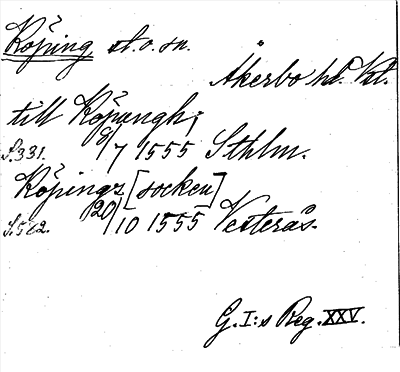 Köping, st. o. sn.
Åkerbo hd. Vl.
till Köpungh;
S. 331. 9/7 1555 Sthlm.
Köpingz [socken]
S. 522. 20/10 1555 Vesterås.
G. I:s Reg. XXV.